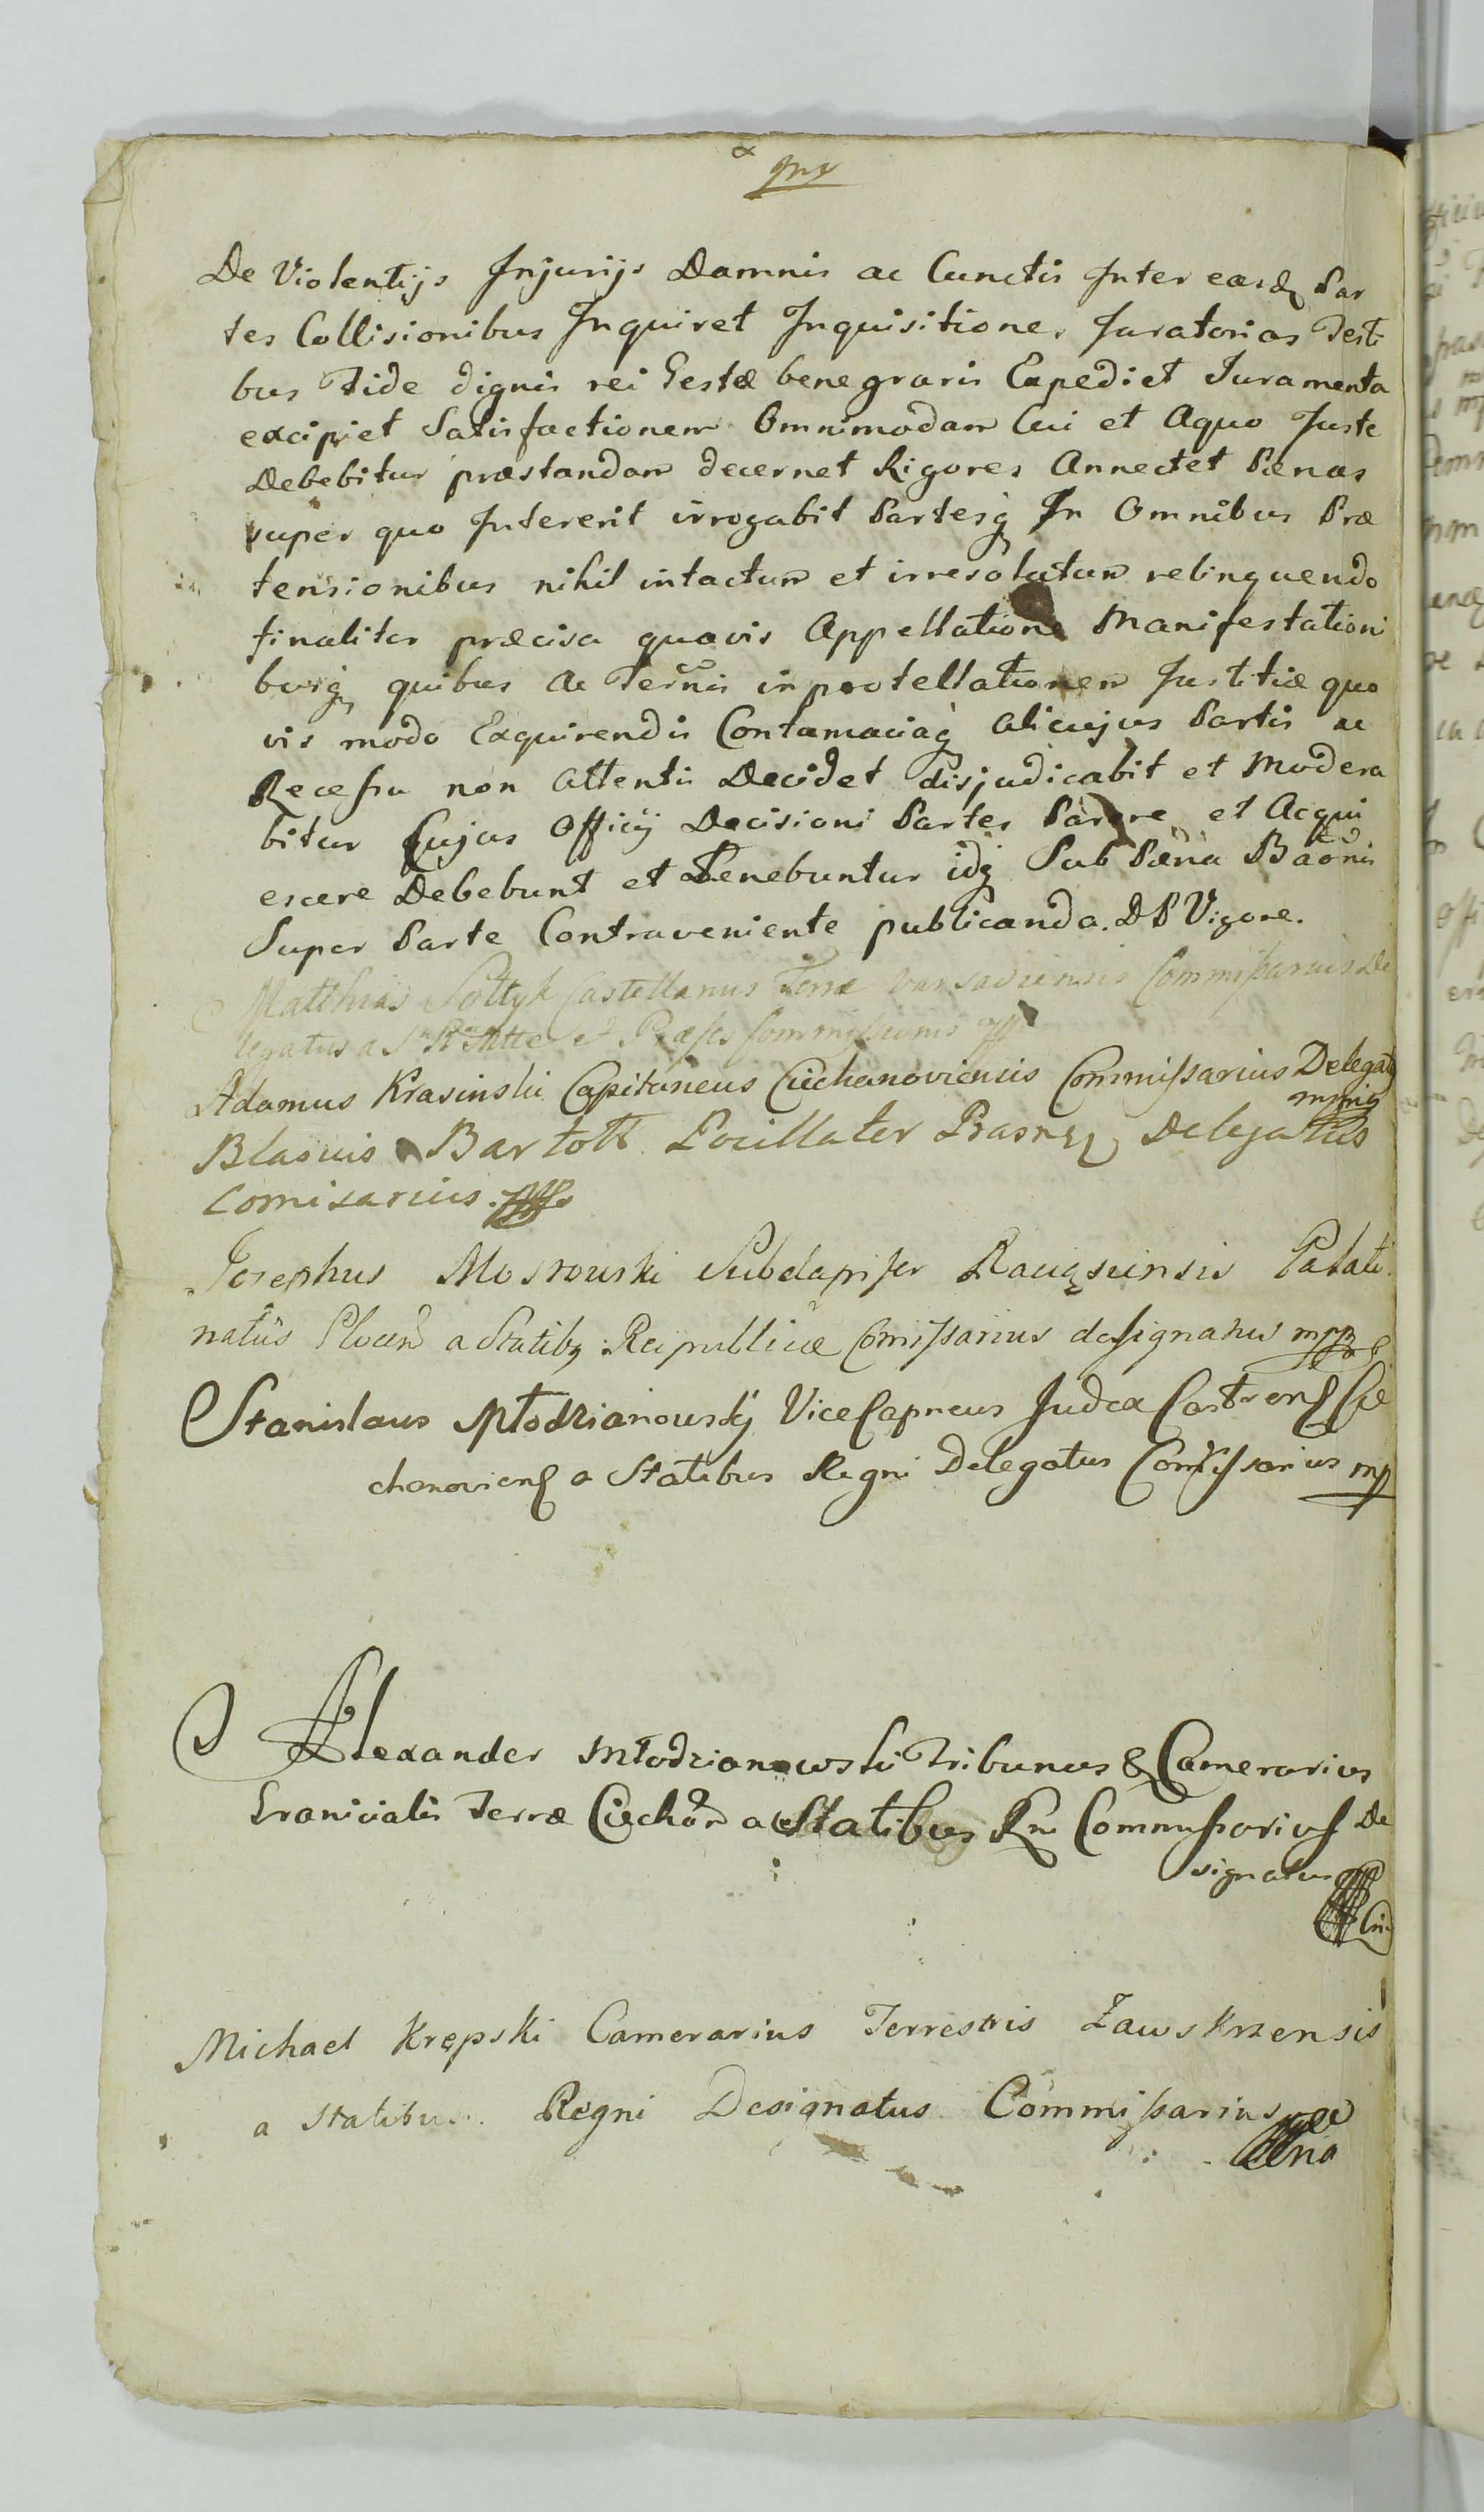 De Violentijs Injurijs Damnis ac Cunctis Inter easdq Par
tes Collisionibus Inquiret Inquisitiones Juratorias Testi
bus Fide dignis rei Gestæ bene gnaris Expediet Juramenta
excipiet Satisfactionem Omnimodam Cui et Aquo Juste
Debebitur præstandam decernet Rigores Annectet Pænas
super quo Intererit irrogabit Partesq In Omnibus Præ
tensionibus nihil intactum et irresolutum relinquendo
finaliter præcisa quavis Appellatione Manifestationi
busq quibus Ac Termis in protellationem Justitiæ quo
vis modo Exquirendis Contumaciaq alicujus Partis ac
Recessu non attentis Decidet disjudicabit et Modera
bitur Cujus Officij Decisioni Partes Parere et Acqui
escere Debebunt et Tenebuntur idq Sub Pæna Baõnis
Super Parte Contraveniente publicanda. D P Vigore.
Matthias Sołtyk Castellanus Terræ Varsaviensis Commissarius De
legatus a Præses Commissionis
Adamus Krasinski Capitaneus Ciechanoviensis Commissarius Delegatq
mmq
Blasius Bartołt Pocillater Prasnq Delegatus
Comisarius.
Josephus Mostowski Subdapifer Raciąsiensis Palati
natûs Plocen a Statibq Reipublicæ Comissarius designatus mp
Stanislaus Młodzianowskÿ ViceCapneus Judex Castrens Cie
chanoviens a Statibus Regni Delegatus Comissarius mp
Alexander Młodzianowski Tribunus & Camerarius
Granicialis Terræ Ciechan a Statibus Rni Commissarius De
signatus
Michael Krępski Camerarius Terrestris Zawskrzensis
a Statibus Regni Designatus Commissarius